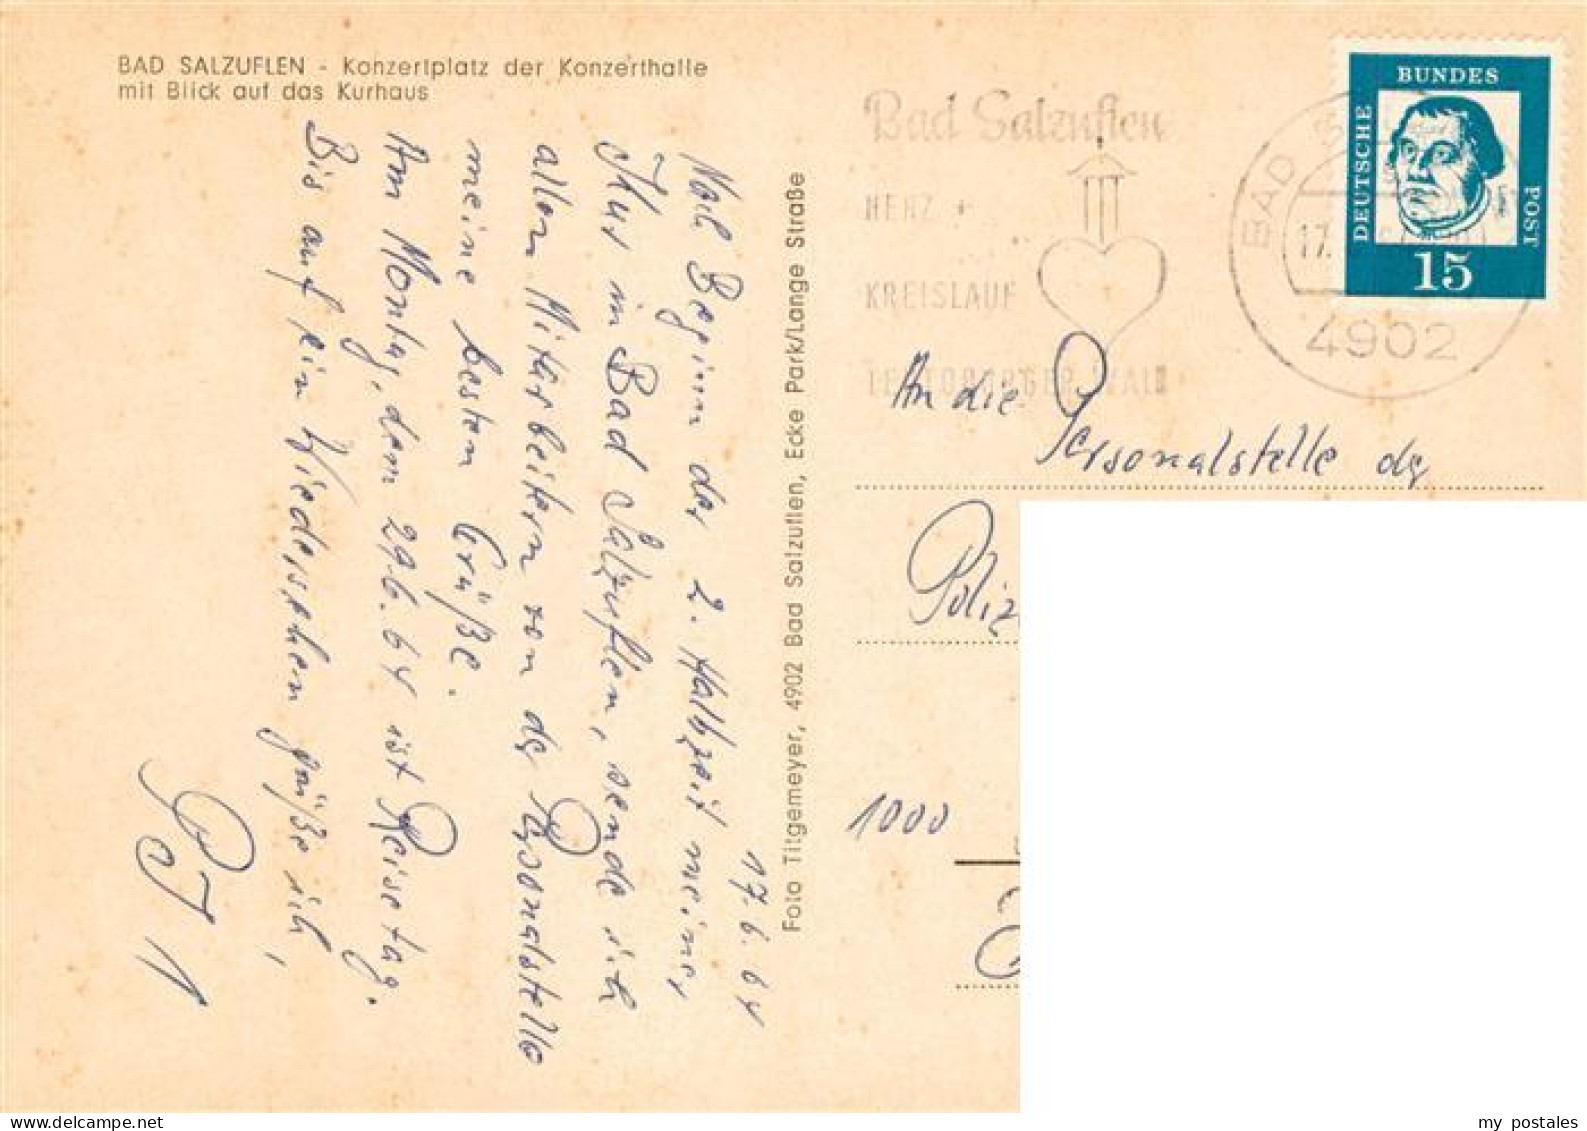 BAD SALZUFLEN - Konzertplatz der Konzerthalle
mit Blick auf das Kurhaus
17.6.64
Nach Beginn der 2. Halbzeit meiner
Kur in Bad Salzuflen, sende ich
allen Mitarbeitern von der Personalstelle
meine besten Grüße.
Am Montag, dem 29.6.64 ist Reisetag.
Bis auf ein Wiedersehen grüße ich,
Foto Titgemeyer, 4902 Bad Salzuflen, Ecke Park/Lange Straße
Bad Salzuflen
HERZ +
KREISLAUF
TEUTOBURGER WALD
BAD
17.
4902
DEUTSCHE
BUNDES
POST
15
An die
Personalstelle der
Poliz
1000
my postales